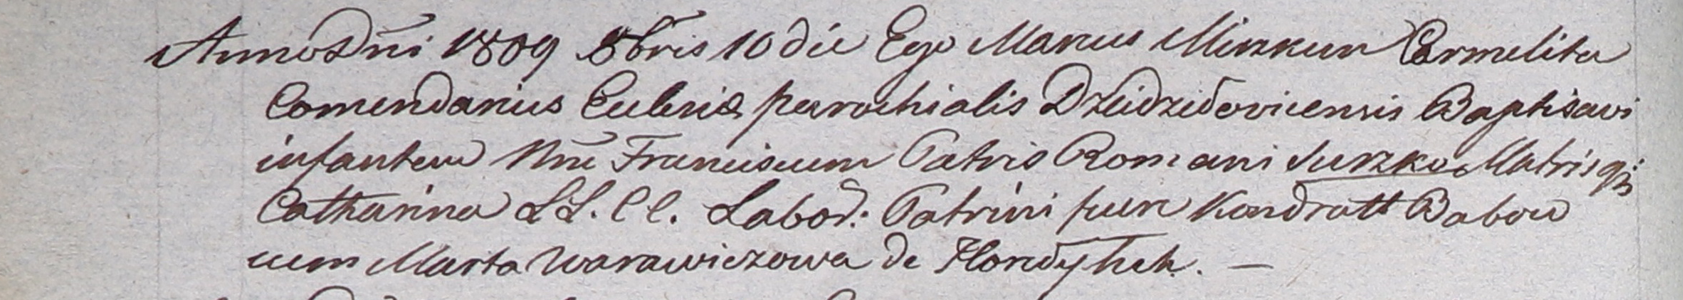 Anno Dni 1809 8bris 10 die Ego Marcus Mirzkun Carmelita
Comendarius Eclesiæ parochialis Dzeidzidovicensis Baptisavi
infantem Nne Franciscum Patris Romani Surzko Matrisq
Catharina LL. CC. Labor: Patrini fuere Kondratt Babow
cum Marta Warawiczowa de